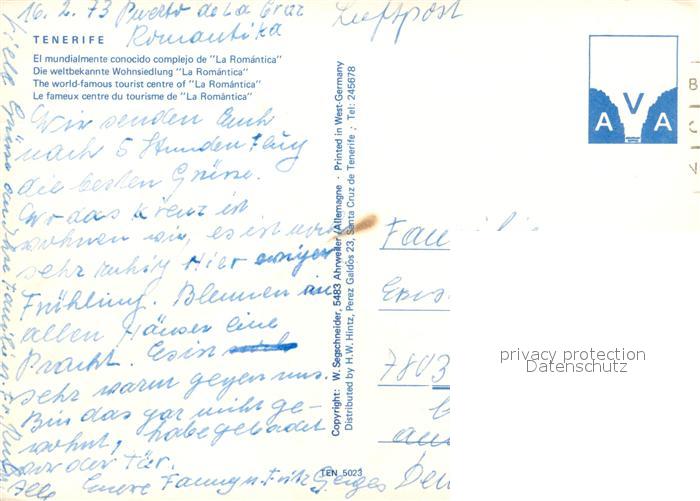 16.2.73 Puerto de La Cruz
Romantika
Luftpost
TENERIFE
El mundialmente conocido complejo de "La Romántica"
Die weltbekannte Wohnsiedlung "La Romántica"
The world-famous tourist centre of "La Romántica"
Le fameux centre du tourisme de "La Romántica"
Wir senden Euch
nach 5 Stunden Flug
die besten Grüsse.
Wo das Kreuz ist
wohnen wir, es ist
sehr ruhig Hier ewiger
Frühling. Blumen an
allen Häuser eine
Pracht. Es ist
sehr warm gegen uns.
Bin das gar nicht ge-
wohnt, habe gebadet
vor der Tür.
Eure Fanny u. Fritz Geiges
Viele Grüsse an Ihre Familie
Copyright: W. Segschneider, 5483 Ahrweiler/Allemagne · Printed in West-Germany
Distributed by H.W. Hintz, Perez Galdós 23, Santa Cruz de Tenerife · Tel: 245678
TEN 5023
AVA
Fam
7803
privacy protection
Datenschutz